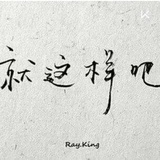 K
就这样吧
Ray.King